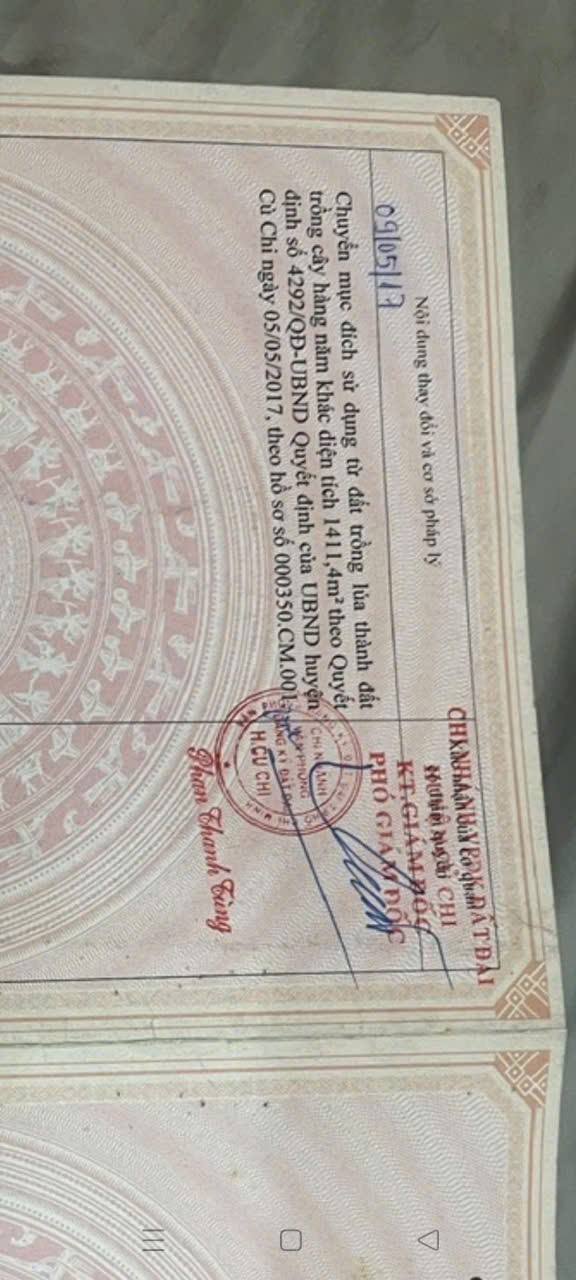 Nội dung thay đổi và cơ sở pháp lý
Xác nhận của cơ quan
có thẩm quyền
CHI NHÁNH VPĐK ĐẤT ĐAI
CHI
KT.GIÁM ĐỐC
PHÓ GIÁM ĐỐC
09/05/17
Chuyển mục đích sử dụng từ đất trồng lúa thành đất
trồng cây hàng năm khác diện tích 1411,4m² theo Quyết
định số 4292/QĐ-UBND Quyết định của UBND huyện
Củ Chi ngày 05/05/2017, theo hồ sơ số 000350.CM.001
CHI NHÁNH
VĂN PHÒNG
ĐĂNG KÝ ĐẤT ĐAI
H.CỦ CHI
Phan Thanh Tùng